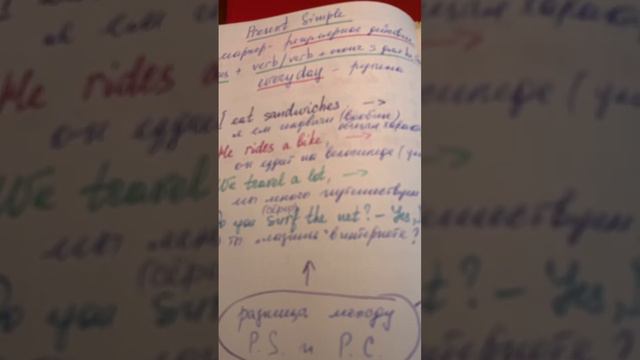 Present Simple
маркер - регулярное действие
+ verb/verb + оконч s
everyday - рутина
I eat sandwiches →
я ем сэндвичи (вообще)
He rides a bike, →
он ездит на велосипеде
We travel a lot, →
мы много путешествуем
Do you surf the net? - Yes,
ты лазишь в интернете?
↑
разница между
P.S. и P.C.